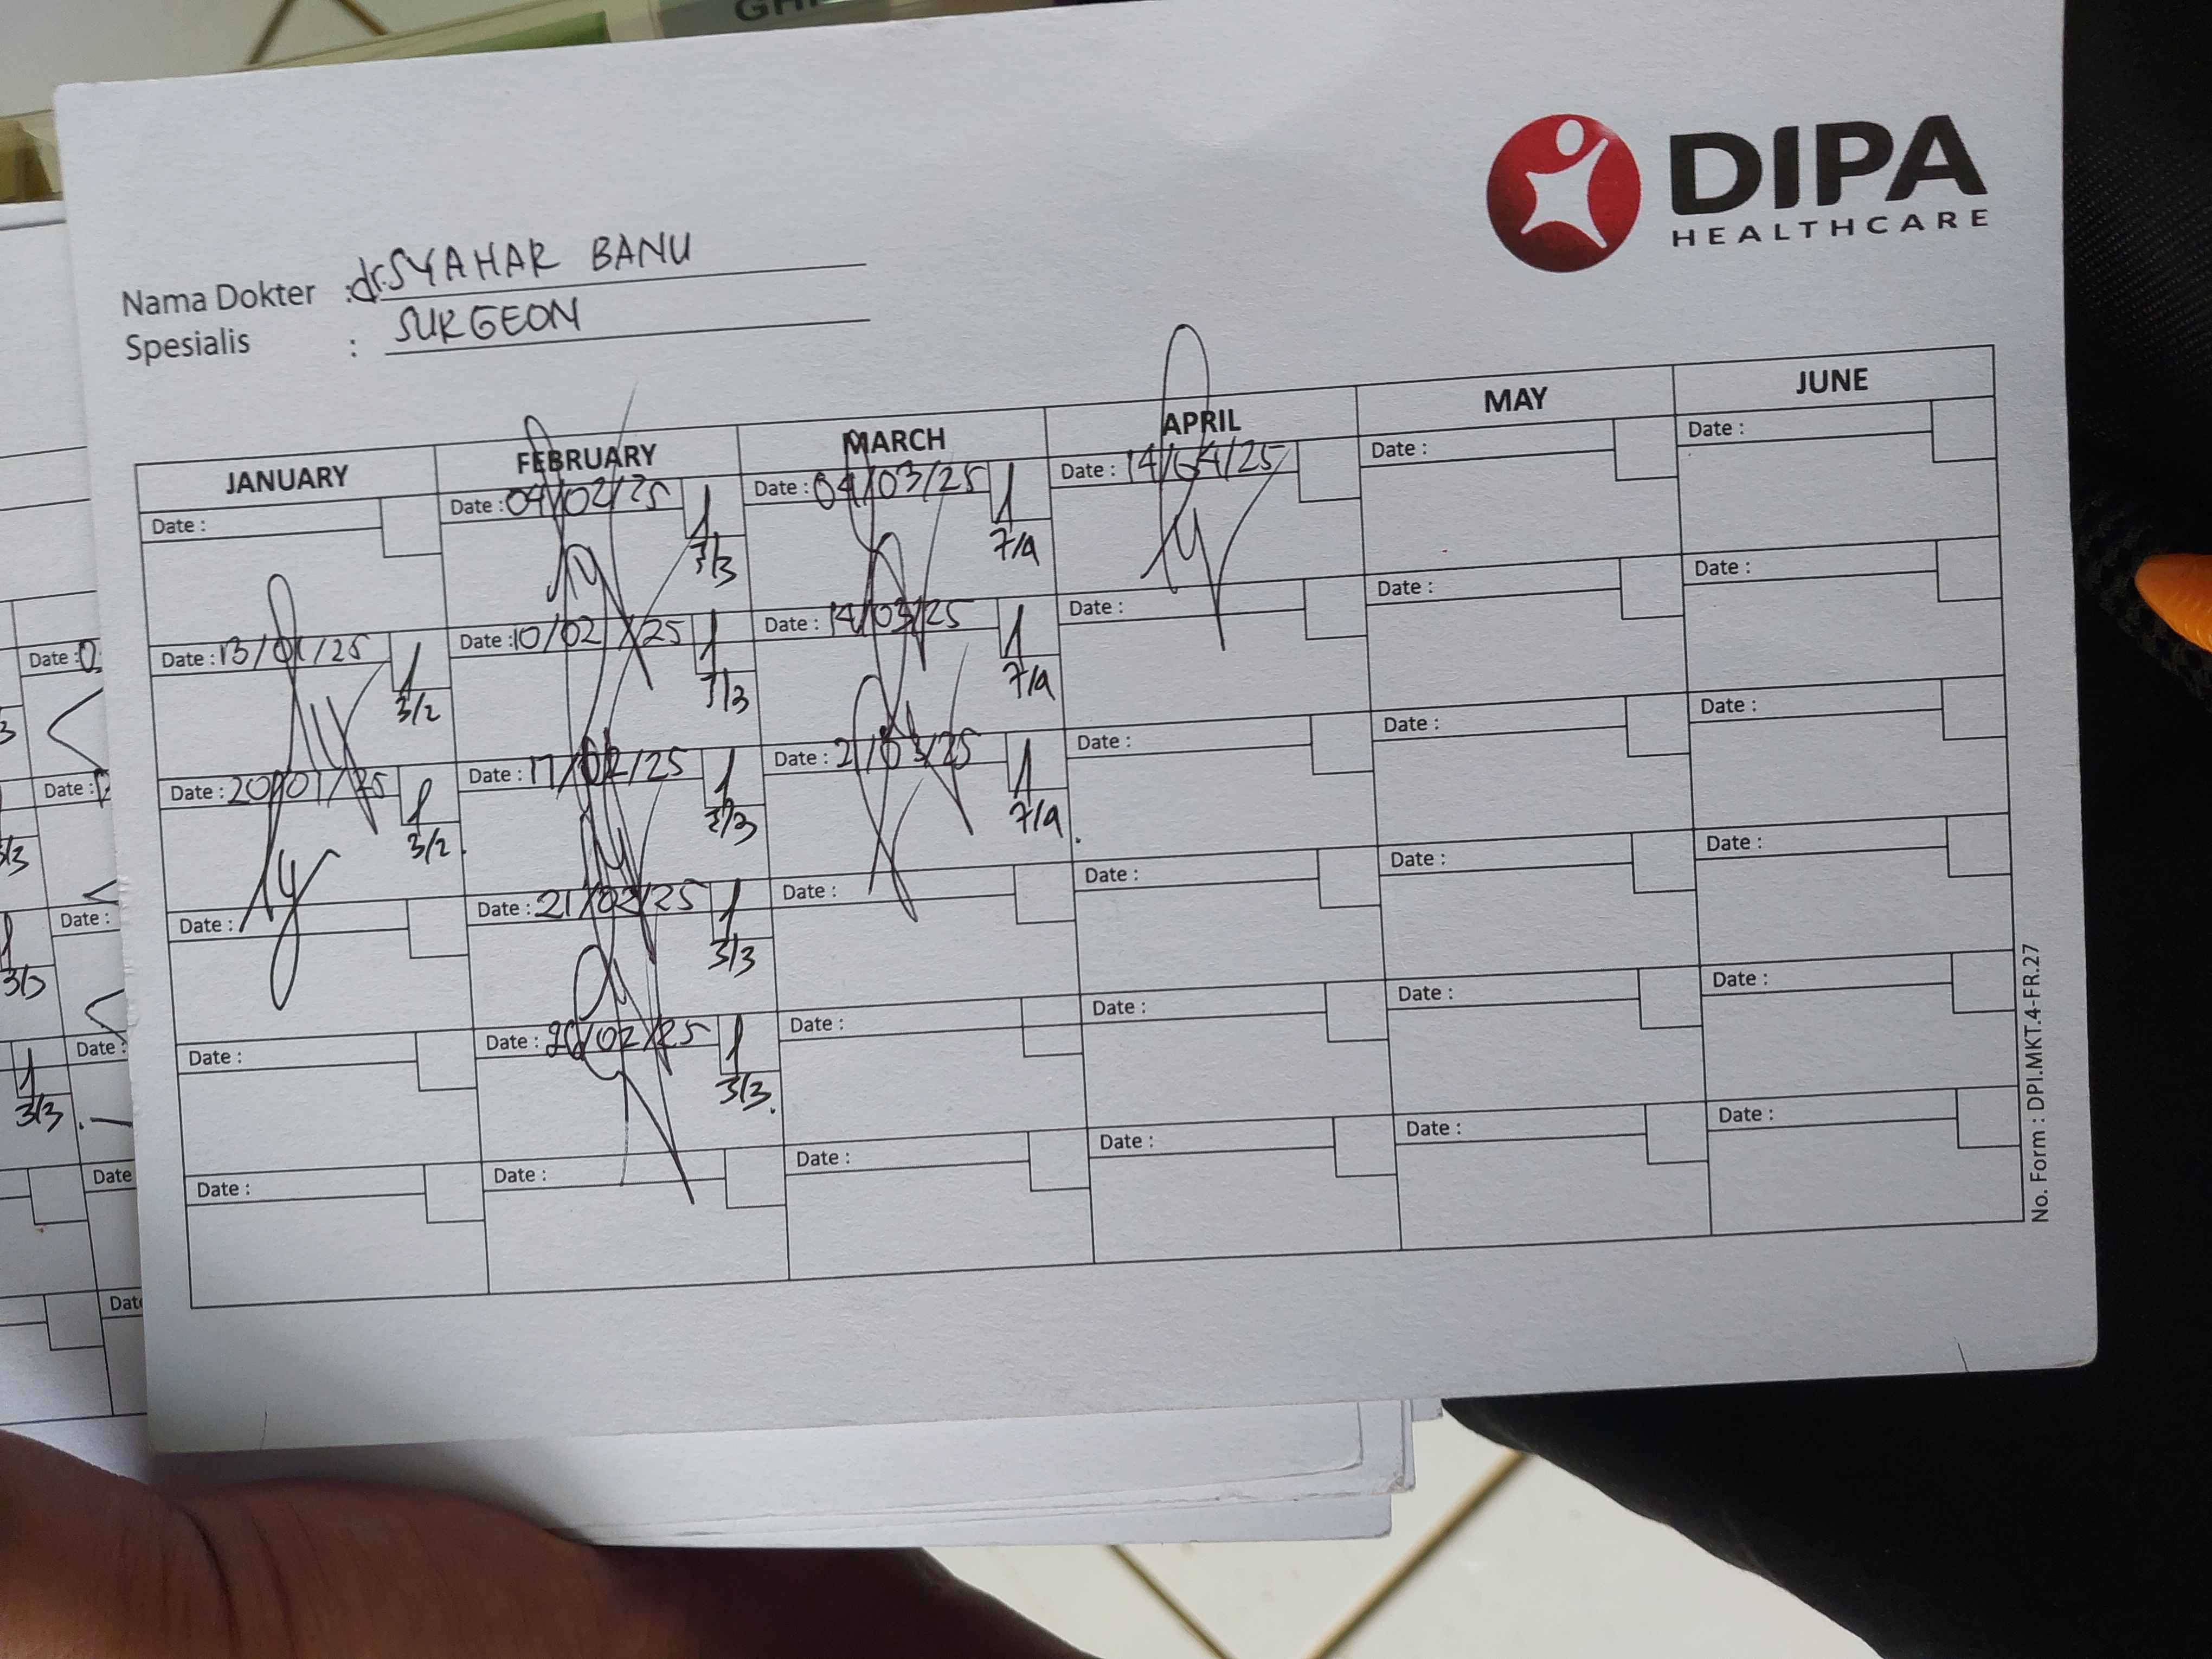 GH
DIPA
HEALTHCARE
Nama Dokter : dr. SYAHAR BANU
Spesialis : SURGEON
JANUARY FEBRUARY MARCH APRIL MAY JUNE
Date : Date : 04/02/25 Date : 04/03/25 Date : 14/04/25 Date : Date :
3/3 7/4
Date : 13/01/25 Date : 10/02/25 Date : 14/03/25 Date : Date : Date :
3/2 3/3 7/4
Date : 20/01/25 Date : 17/02/25 Date : 21/03/25 Date : Date : Date :
3/2 3/3 7/4
Date : Date : 21/02/25 Date : Date : Date : Date :
3/3
Date : Date : 26/02/25 Date : Date : Date : Date :
3/3
Date : Date : Date : Date : Date : Date :
No. Form : DPI.MKT.4-FR.27
Date : 0
Date :
Date :
3/3
Date :
3/3
Date
Date